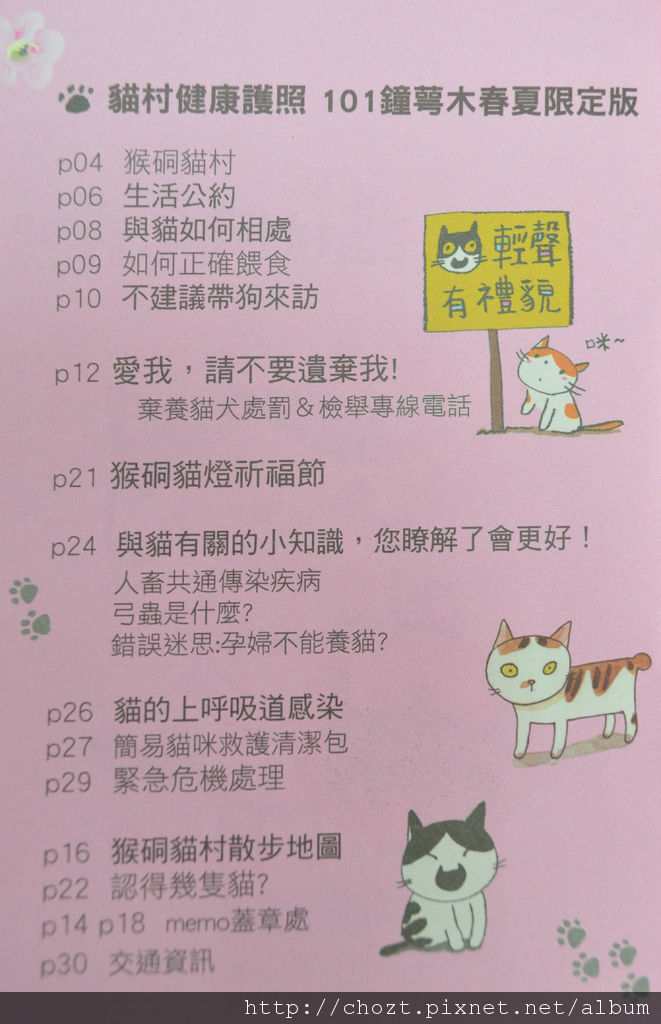 貓村健康護照 101鐘萼木春夏限定版
p04 猴硐貓村
p06 生活公約
p08 與貓如何相處
p09 如何正確餵食
p10 不建議帶狗來訪
輕聲
有禮貌
咪~
p12 愛我，請不要遺棄我!
棄養貓犬處罰&檢舉專線電話
p21 猴硐貓燈祈福節
p24 與貓有關的小知識，您瞭解了會更好！
人畜共通傳染疾病
弓蟲是什麼?
錯誤迷思:孕婦不能養貓?
p26 貓的上呼吸道感染
p27 簡易貓咪救護清潔包
p29 緊急危機處理
p16 猴硐貓村散步地圖
p22 認得幾隻貓?
p14 p18 memo蓋章處
p30 交通資訊
http://chozt.pixnet.net/album